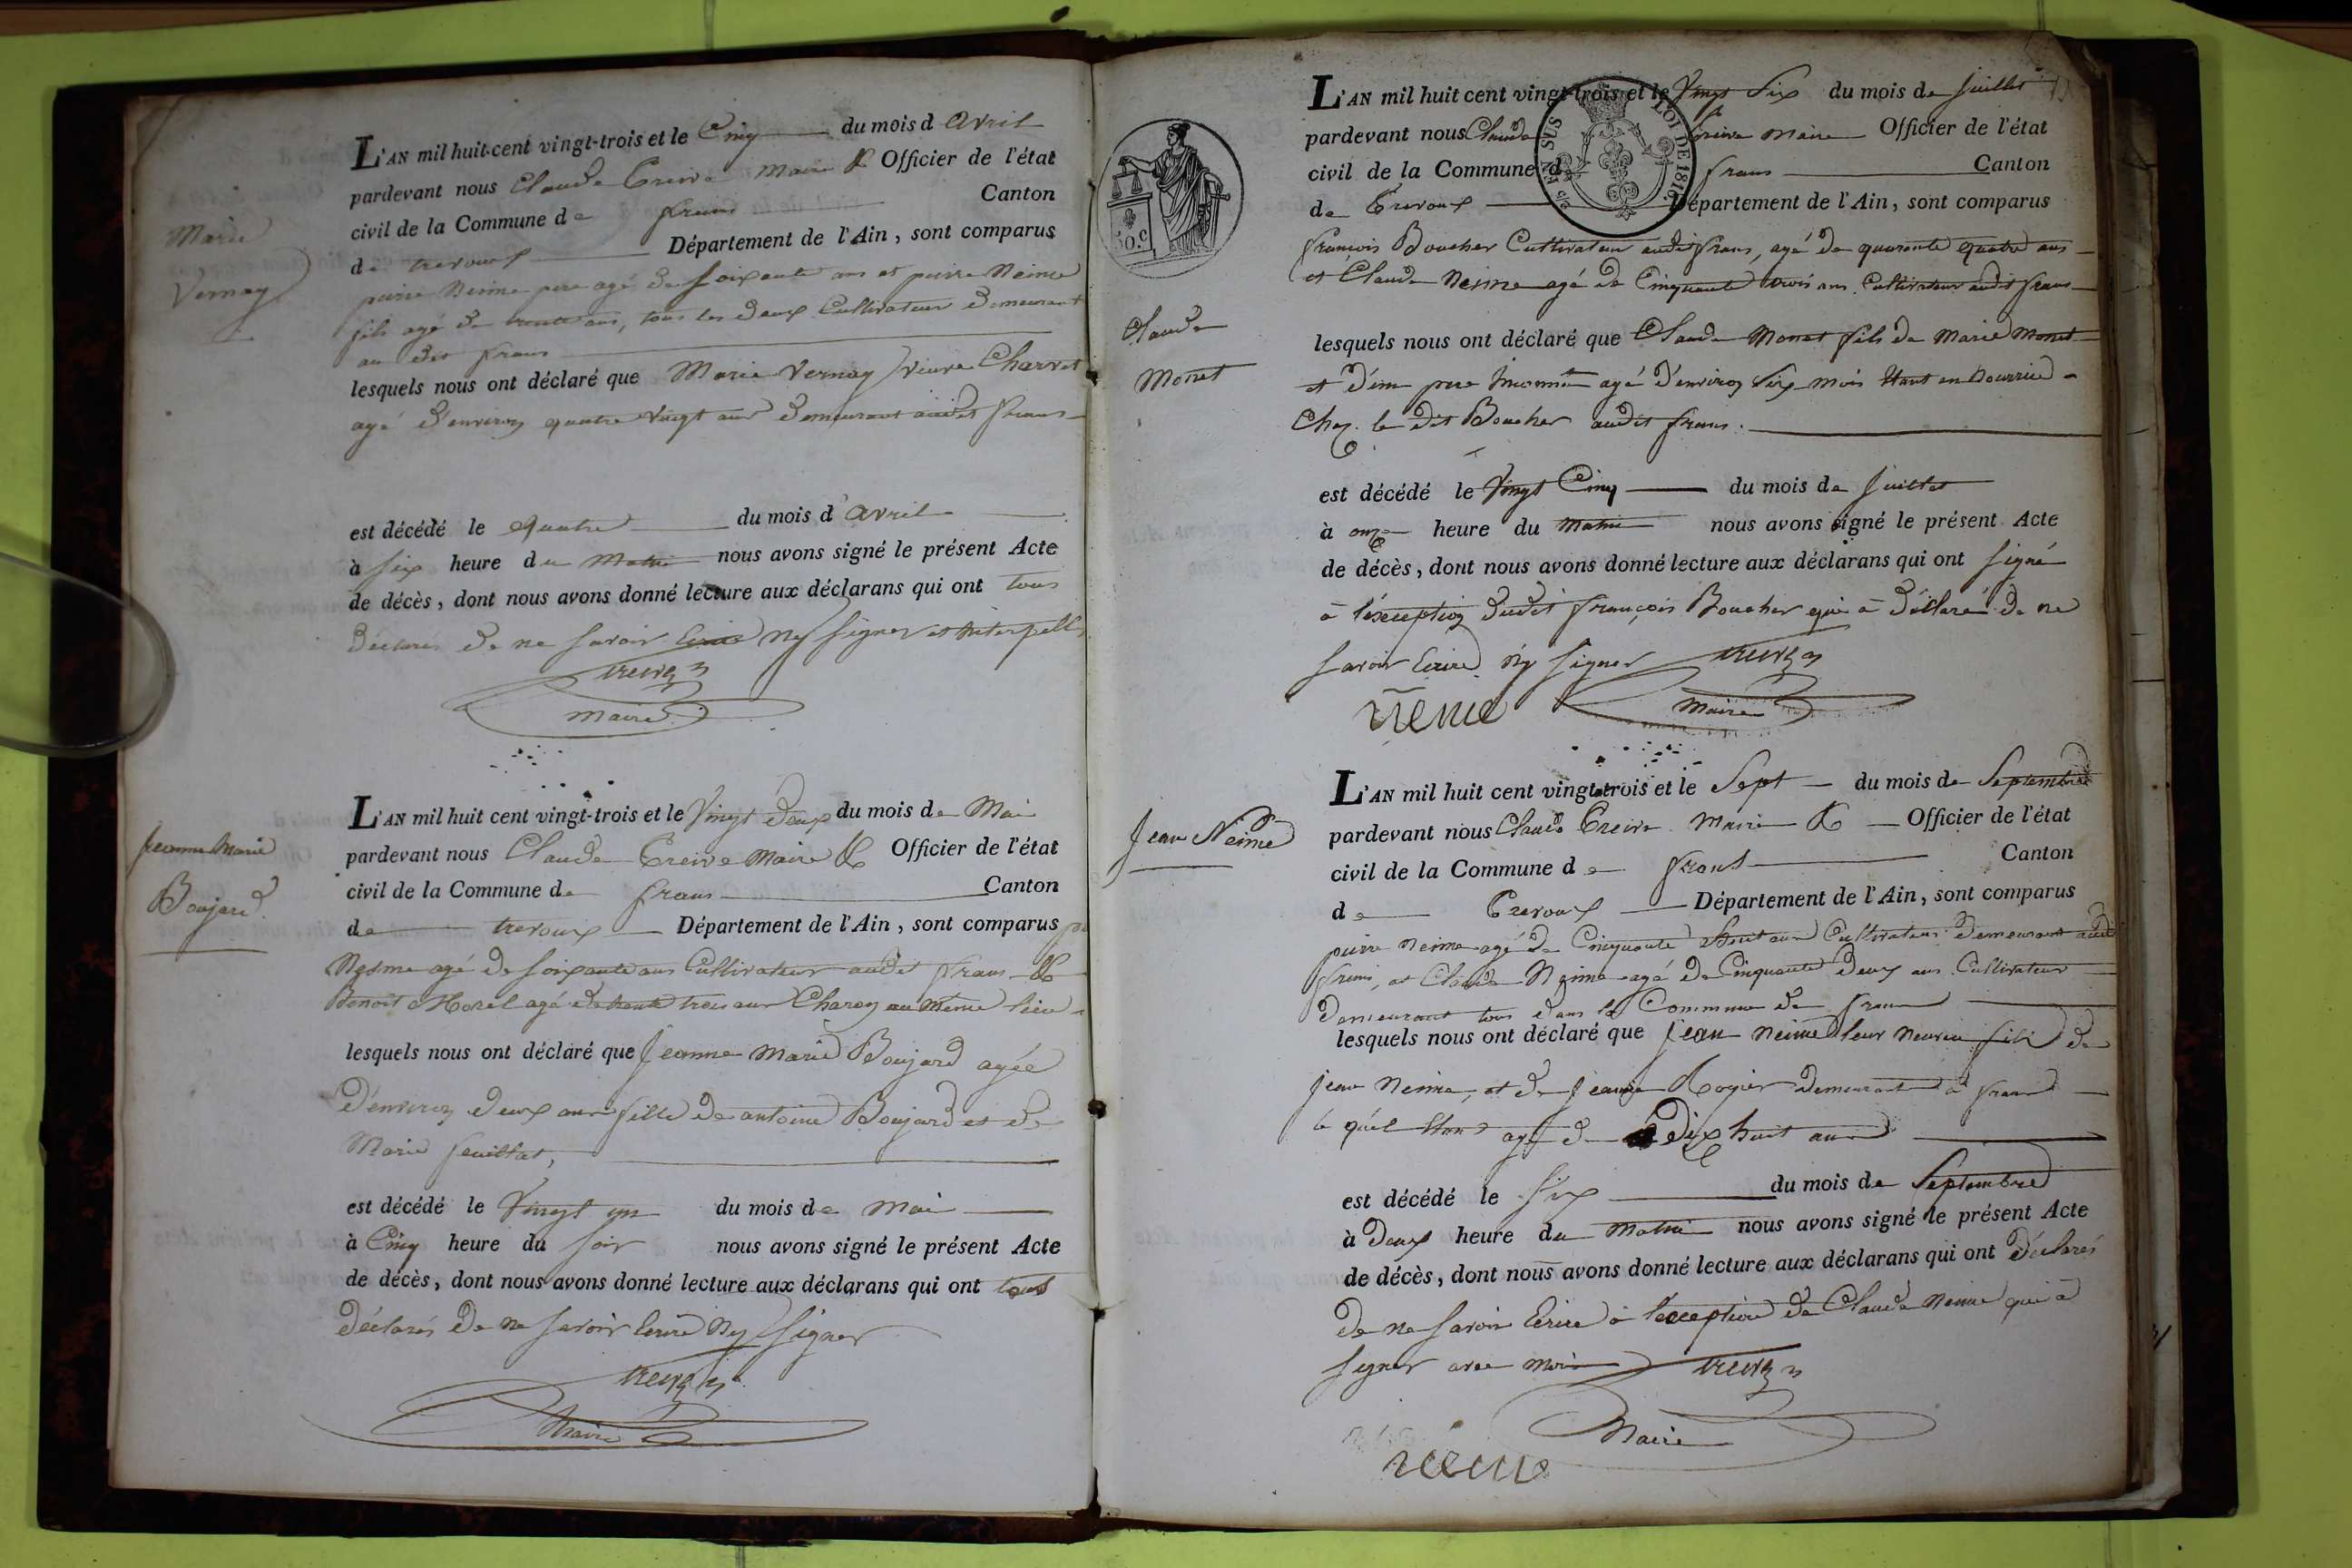 L'AN mil huit cent vingt-trois et le Cinq du mois d avril
pardevant nous Claude Treive Maire & Officier de l'état
civil de la Commune de frans Canton
de trevoux Département de l'Ain, sont comparus
Marie
Vernay
pierre Neime pere agé de soixante ans et pierre Neime
fils agé de trente ans, tous les deux Cultivateur demeurant
au dit frans
lesquels nous ont déclaré que Marie Vernay veuve Charvet
agé d'environ quatre vingt ans demeurant audit frans
est décédé le quatre du mois d'avril
à six heure du matin nous avons signé le présent Acte
de décès, dont nous avons donné lecture aux déclarans qui ont tous
déclarés de ne savoir Ecrire Ny signer
treive
maire
L'AN mil huit cent vingt-trois et le Vingt deux du mois de Mai
pardevant nous Claude Treive Maire & Officier de l'état
Jeanne Marie
Boujard
civil de la Commune de frans Canton
de trevoux Département de l'Ain, sont comparus
Nesme agé de soixante ans Cultivateur audit frans &
Benoit Morel agé de trente trois ans Charon au même lieu
lesquels nous ont déclaré que Jeanne Marie Boujard agée
d'environ deux ans fille de antoine Boujard et de
Marie feuillat,
est décédé le Vingt un du mois de mai
à Cinq heure du soir nous avons signé le présent Acte
de décès, dont nous avons donné lecture aux déclarans qui ont tous
déclarés de ne savoir Ecrire Ny signer
treive
Maire
L'AN mil huit cent vingt-trois et le Vingt Six du mois de Juillet
pardevant nous Claude Treive Maire Officier de l'état
civil de la Commune d frans Canton
de Trevoux Département de l'Ain, sont comparus
EN SUS
LOI DE 1816
50.c
françois Boucher Cultivateur audit frans, agé de quarante quatre ans
et Claude Neime agé de Cinquante trois ans Cultivateur audit frans
Claude
Monet
lesquels nous ont déclaré que Claude Monet fils de Marie Monet
et d'un pere Inconnu agé d'environ Six mois Etant en Nourrice
Chez le dit Boucher audit frans.
est décédé le Vingt Cinq du mois de Juillet
à onze heure du matin nous avons signé le présent Acte
de décès, dont nous avons donné lecture aux déclarans qui ont signé
à l'exception dudit françois Boucher qui à déclaré de ne
savoir Ecrire Ny signer treive
neme maire
L'AN mil huit cent vingt-trois et le Sept du mois de Septembre
Jean Neime
pardevant nous Claude Treive Maire & Officier de l'état
civil de la Commune de frans Canton
de Trevoux Département de l'Ain, sont comparus
pierre neime agé de Cinquante huit ans Cultivateur demeurant audit
frans, et Claude Neime agé de Cinquante deux ans Cultivateur
demeurant tous dans la Commune de frans
lesquels nous ont déclaré que Jean Neime leur neuveu fils de
Jean Neime, et de Jeanne Rogier demeurant à frans
le quel Etant agé de dix huit ans
est décédé le Six du mois de Septembre
à deux heure du matin nous avons signé le présent Acte
de décès, dont nous avons donné lecture aux déclarans qui ont déclarés
de ne savoir Ecrire à l'exception de Claude Neime qui à
signer avec moi treive
Maire
neme